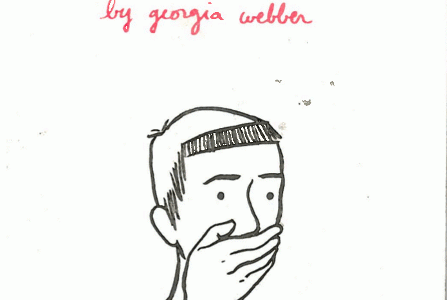 by georgia webber